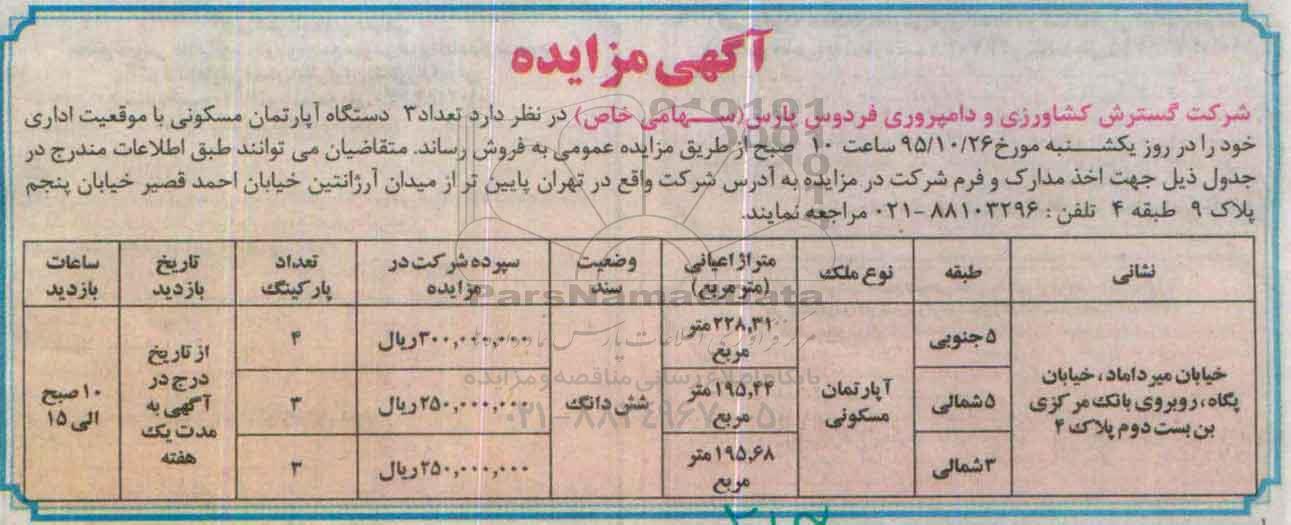 آگهی مزایده
شرکت گسترش کشاورزی و دامپروری فردوس پارس(سهامی خاص) در نظر دارد تعداد۳ دستگاه آپارتمان مسکونی با موقعیت اداری
خود را در روز یکشنبه مورخ۹۵/۱۰/۲۶ ساعت ۱۰ صبح از طریق مزایده عمومی به فروش رساند. متقاضیان می توانند طبق اطلاعات مندرج در
جدول ذیل جهت اخذ مدارک و فرم شرکت در مزایده به آدرس شرکت واقع در تهران پایین تر از میدان آرژانتین خیابان احمد قصیر خیابان پنجم
پلاک ۹ طبقه ۴ تلفن : ۸۸۱۰۳۲۹۶-۰۲۱ مراجعه نمایند.
نشانی طبقه نوع ملک متراژ اعیانی (مترمربع) وضعیت سند سپرده شرکت در مزایده تعداد پارکینگ تاریخ بازدید ساعات بازدید
خیابان میرداماد، خیابان
پگاه، روبروی بانک مرکزی
بن بست دوم پلاک ۴
۵جنوبی
۵شمالی
۳شمالی
آپارتمان
مسکونی
۲۲۸,۳۱متر
مربع
۱۹۵,۴۴متر
مربع
۱۹۵,۶۸متر
مربع
شش دانگ
۳۰۰,۰۰۰,۰۰۰ریال
۲۵۰,۰۰۰,۰۰۰ریال
۲۵۰,۰۰۰,۰۰۰ریال
۴
۳
۳
از تاریخ
درج در
آگهی به
مدت یک
هفته
۱۰صبح
الی ۱۵
ParsNamadData
پایگاه اطلاع رسانی مناقصه و مزایده